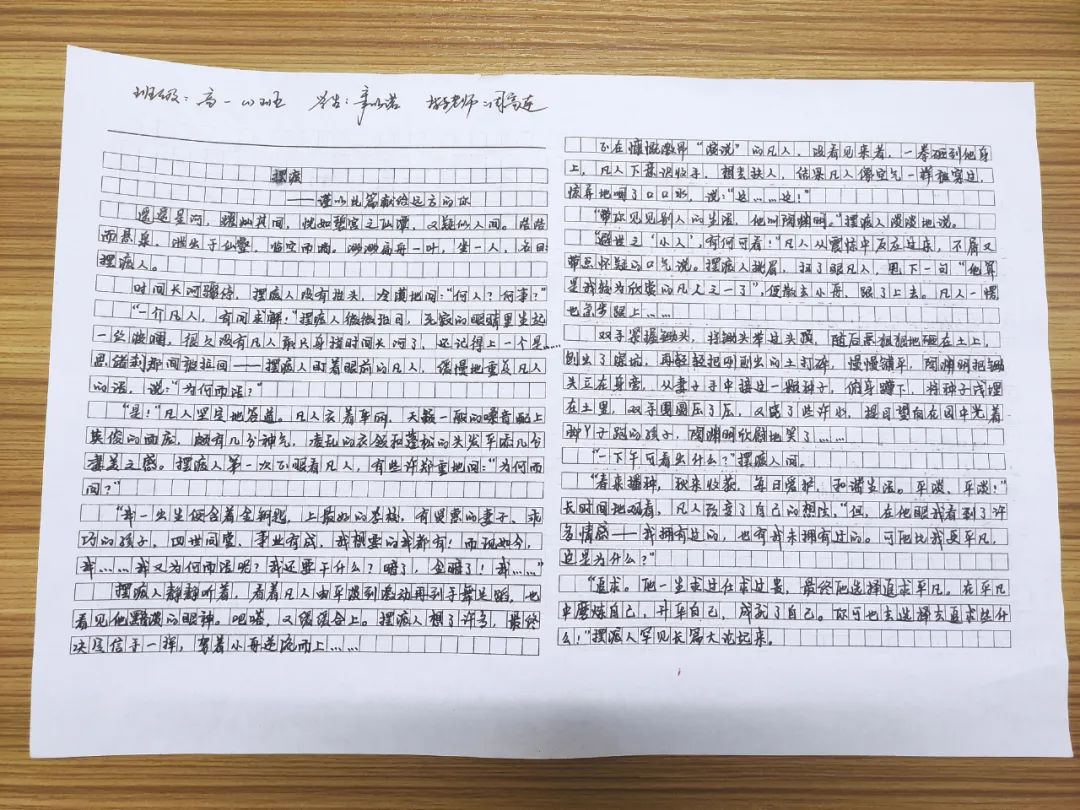 班级：高一(1)班 学生：章以诺 指导老师：闵高连
摆渡
——谨以此篇献给远方的你
漫漫星河，璀灿其间，恍如碧宫之仙潭，又疑似人间。
而悬泉，泄出于仙壑，当空而落。渺渺扁舟一叶，坐一人，名曰
摆渡人。
时间长河骤停，摆渡人没有抬头，冷漠地问：“何人？何事？”
“一介凡人，有问求解！”摆渡人微微抬目，无寂的眼睛里生起
一丝波澜，很久没有凡人敢只身闯时间长河了，还记得上一个是……
思绪刹那间被拉回——摆渡人盯着眼前的凡人，缓慢地重复凡人
的话，说：“为何而活？”
“是！”凡人坚定地答道。凡人衣着华丽，天籁一般的嗓音配上
英俊的面庞，颇有几分神气，凌乱的衣领和蓬松的头发平添几分
凄美之感。摆渡人第一次正眼看凡人，有些许郑重地问：“为何而
问？”
“我一出生便含着金钥匙，上最好的学校，有贤惠的妻子、乖
巧的孩子，四世同堂，事业有成，我想要的我都有！而现如今，
我……我又为何而活呢？我还要干什么？暗了，全暗了！我……”
摆渡人静静听着，看着凡人由平淡到激动再到手舞足蹈，也
看见他黯淡的眼神。吧嗒，又缓缓合上。摆渡人想了许多，最终
决定信手一挥，驾着小舟逆流而上……
正在慷慨激昂“演说”的凡人，没看见来者，一拳砸到他身
上，凡人下意识收手，想去扶人，结果凡人像空气一样被穿过，
惊异地咽了口口水，说：“这……这！”
“带你见见别人的生活，他叫陶渊明。”摆渡人淡淡地说。
“避世之‘小人’，有何可看！”凡人从震惊中反应过来，不屑又
带点怀疑的口气说。摆渡人皱眉，扭了眼凡人，甩下一句“他算
是我极为欣赏的凡人之一了”，便散去小舟，跟了上去。凡人一愣
也急步跟上……
双手紧握锄头，将锄头举过头顶，随后恶狠狠地砸在土上，
刨出了深坑，再轻轻把刚刨出的土打碎，慢慢铺平，陶渊明把锄
头立在身旁，从妻子手中接过一颗种子，俯身蹲下，将种子浅埋
在土里，双手围圈压了压，又盛了些许水，提目望向在田中光着
脚丫子跑的孩子，陶渊明欣慰地笑了……
“一下午可看出什么？”摆渡人问。
“春来播种，秋来收获，每日爱护，和谐生活。平淡，平淡！”
长时间地观看，凡人改变了自己的想法，“但，在他眼我看到了许
多情感——我拥有过的，也有我未拥有过的。可他比我更平凡，
这是为什么？”
“追求。他一生求过仕求过贵，最终他选择追求平凡。在平凡
中磨炼自己，升华自己，成就了自己。你可也去选择去追求些什
么，”摆渡人罕见长篇大论起来。